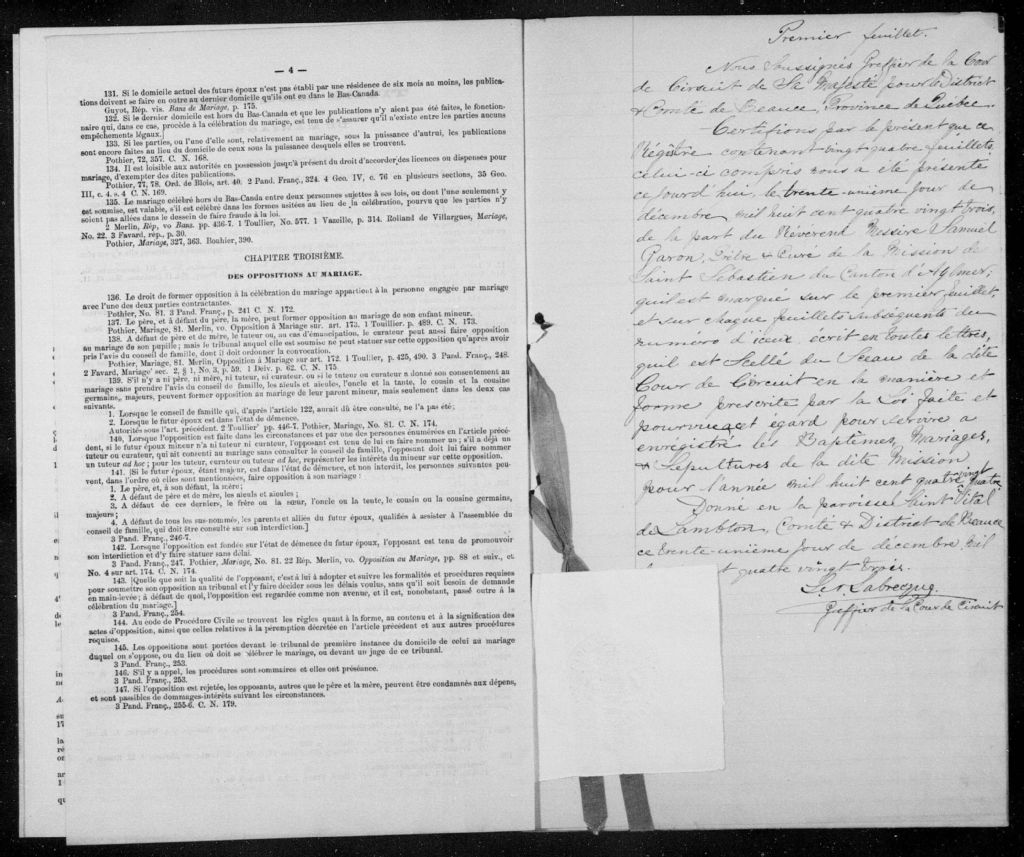 — 4 —
131. Si le domicile actuel des futurs époux n'est pas établi par une résidence de six mois au moins, les publica-
tions doivent se faire en outre au dernier domicile qu'ils ont eu dans le Bas-Canada.
Guyot, Rép. vis. Bans de Mariage, p. 175.
132. Si le dernier domicile est hors du Bas-Canada et que les publications n'y aient pas été faites, le fonction-
naire qui, dans ce cas, procède à la célébration du mariage, est tenu de s'assurer qu'il n'existe entre les parties aucuns
empêchements légaux.]
133. Si les parties, ou l'une d'elles, sont, relativement au mariage, sous la puissance d'autrui, les publications
sont encore faites au lieu du domicile de ceux sous la puissance desquels elles se trouvent.
Pothier, 72, 357. C. N. 168.
134. Il est loisible aux autorités en possession jusqu'à présent du droit d'accorder des licences ou dispenses pour
mariage, d'exempter des dites publications.
Pothier, 77, 78. Ord. de Blois, art. 40. 2 Pand. Franç., 324. 4 Geo. IV, c. 76 en plusieurs sections, 35 Geo.
III, c. 4. s. 4 C. N. 169.
135. Le mariage célébré hors du Bas-Canada entre deux personnes sujettes à ses lois, ou dont l'une seulement y
est soumise, est valable, s'il est célébré dans les formes usitées au lieu de la célébration, pourvu que les parties n'y
soient pas allées dans le dessein de faire fraude à la loi.
2 Merlin, Rép, vo Bans. pp. 436-7. 1 Toullier, No. 577. 1 Vazeille, p. 314. Rolland de Villargues, Mariage,
No. 22. 3 Favard, rép., p. 30.
Pothier, Mariage, 327, 363. Bouhier, 390.
CHAPITRE TROISIÈME.
DES OPPOSITIONS AU MARIAGE.
136. Le droit de former opposition à la célébration du mariage appartient à la personne engagée par mariage
avec l'une des deux parties contractantes.
Pothier, No. 81. 3 Pand. Franç., p. 241 C. N. 172.
137. Le père, et à défaut du père, la mère, peut former opposition au mariage de son enfant mineur.
Pothier, Mariage, 81. Merlin, vo. Opposition à Mariage sur. art. 173. 1 Touillier. p. 489. C. N. 173.
138. A défaut de père et de mère, le tuteur ou, au cas d'émancipation, le curateur peut aussi faire opposition
au mariage de son pupille; mais le tribunal auquel elle est soumise ne peut statuer sur cette opposition qu'après avoir
pris l'avis du conseil de famille, dont il doit ordonner la convocation.
Pothier, Mariage, 81. Merlin, Opposition à Mariage sur art. 172. 1 Toullier, p. 425, 490. 3 Pand. Franç., 248.
2 Favard, Mariage' sec. 2, § 1, No. 3, p. 59. 1 Delv. p. 62. C. N. 175
139. S'il n'y a ni père, ni mère, ni tuteur, ni curateur, ou si le tuteur ou curateur a donné son consentement au
mariage sans prendre l'avis du conseil de famille, les aïeuls et aïeules, l'oncle et la tante, le cousin et la cousine
germains, majeurs, peuvent former opposition au mariage de leur parent mineur, mais seulement dans les deux cas
suivants.
1. Lorsque le conseil de famille qui, d'après l'article 122, aurait dû être consulté, ne l'a pas été;
2. Lorsque le futur époux est dans l'état de démence.
Autorités sous l'art. précédent. 2 Toullier' pp. 446-7. Pothier, Mariage, No. 81. C. N. 174.
140. Lorsque l'opposition est faite dans les circonstances et par une des personnes énumérées en l'article précé-
dent, si le futur époux mineur n'a ni tuteur ni curateur, l'opposant est tenu de lui en faire nommer un; s'il a déjà un
tuteur ou curateur, qui ait consenti au mariage sans consulter le conseil de famille, l'opposant doit lui faire nommer
un tuteur ad hoc; pour les tuteur, curateur ou tuteur ad hoc, représenter les intérêts du mineur sur cette opposition.
141. [Si le futur époux, étant majeur, est dans l'état de démence, et non interdit, les personnes suivantes peu-
vent, dans l'ordre où elles sont mentionnées, faire opposition à son mariage:
1. Le père, et, à son défaut, la mère;
2. A défaut de père et de mère, les aïeuls et aïeules;
3. A défaut de ces derniers, le frère ou la sœur, l'oncle ou la tante, le cousin ou la cousine germains,
majeurs;
4. A défaut de tous les sus-nommés, les parents et alliés du futur époux, qualifiés à assister à l'assemblée du
conseil de famille, qui doit être consulté sur son interdiction.]
3 Pand. Franç., 246-7.
142. Lorsque l'opposition est fondée sur l'état de démence du futur époux, l'opposant est tenu de promouvoir
son interdiction et d'y faire statuer sans délai.
3 Pand. Franç., 247. Pothier, Mariage, No. 81. 22 Rép. Merlin, vo. Opposition au Mariage, pp. 88 et suiv., et
No. 4 sur art. 174. C. N. 174.
143. [Quelle que soit la qualité de l'opposant, c'est à lui à adopter et suivre les formalités et procédures requises
pour soumettre son opposition au tribunal et l'y faire décider sous les délais voulus, sans qu'il soit besoin de demande
en main-levée; à défaut de quoi, l'opposition est regardée comme non avenue, et il est, nonobstant, passé outre à la
célébration du mariage.]
3 Pand. Franç., 254.
144. Au code de Procédure Civile se trouvent les règles quant à la forme, au contenu et à la signification des
actes d'opposition, ainsi que celles relatives à la péremption décrétée en l'article précédent et aux autres procédures
requises.
145. Les oppositions sont portées devant le tribunal de première instance du domicile de celui au mariage
duquel on s'oppose, ou du lieu où doit se célébrer le mariage, ou devant un juge de ce tribunal.
3 Pand. Franç., 253.
146. S'il y a appel, les procédures sont sommaires et elles ont préséance.
3 Pand. Franç., 253.
147. Si l'opposition est rejetée, les opposants, autres que le père et la mère, peuvent être condamnés aux dépens,
et sont passibles de dommages-intérêts suivant les circonstances.
3 Pand. Franç., 255-6. C. N. 179.
Premier feuillet.
Nous Soussignés Greffier de la Cour
de Circuit de Sa Majesté pour le District
& Comté de Beauce, Province de Québec
Certifions par le présent que ce
Régître contenant vingt quatre feuillets,
celui-ci compris nous a été présenté
ce jourd'hui le trente-unième jour de
décembre mil huit cent quatre vingt trois,
de la part du Révérend Messire Samuel
Garon, Prêtre & Curé de la Mission de
Saint Sébastien du Canton d'Aylmer;
qu'il est marqué sur le premier feuillet,
et sur chaque feuillets subséquents du
numéro d'iceux, écrit en toutes lettres,
qu'il est Scellé du Sceau de la dite
Cour de Circuit en la manière et
forme prescrite par la Loi faite et
pourvue à cet égard pour servir à
enregistré les Baptêmes, Mariages,
& Sépultures de la dite Mission
pour l'année mil huit cent quatre vingt quatre
Donné en la paroisse Saint Vital
de Lambton, Comté & District de Beauce
ce trente-unième jour de décembre mil
quatre vingt trois.
Labrecque
Greffier de la Cour de Circuit